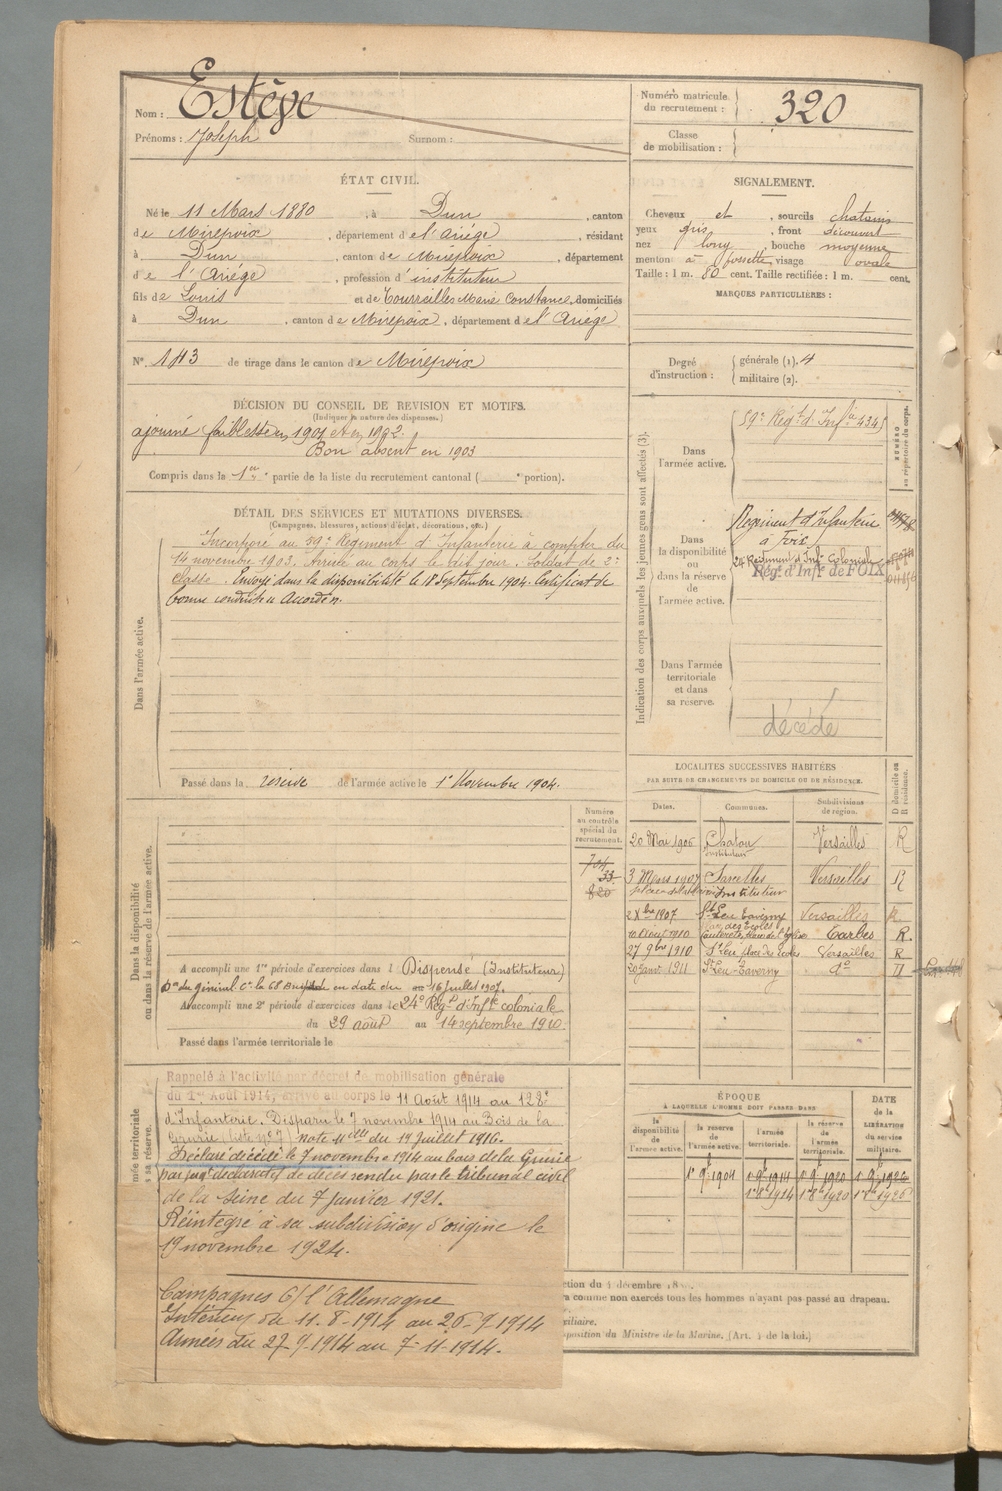 Nom : Estève
Prénoms : Joseph Surnom :
Numéro matricule du recrutement : 320
Classe de mobilisation :
ÉTAT CIVIL.
Né le 11 Mars 1880, à Dun, canton
de Mirepoix, département de l'Ariége, résidant
à Dun, canton de Mirepoix, département
de l'Ariége, profession d'instituteur
fils de Louis et de Tourreilles Marie Constance, domiciliés
à Dun, canton de Mirepoix, département de l'Ariége
N° 143 de tirage dans le canton de Mirepoix
SIGNALEMENT.
Cheveux et, sourcils chatains
yeux gris, front découvert
nez long, bouche moyenne
menton à fossette, visage ovale
Taille : 1 m. 80 cent. Taille rectifiée : 1 m. cent.
MARQUES PARTICULIÈRES :
Degré d'instruction : générale (1). 4
militaire (2).
DÉCISION DU CONSEIL DE REVISION ET MOTIFS.
(Indiquer la nature des dispenses.)
ajourné faiblesse en 1901 et en 1902.
Bon absent en 1903
Compris dans la 1re partie de la liste du recrutement cantonal ( e portion).
DÉTAIL DES SERVICES ET MUTATIONS DIVERSES.
(Campagnes, blessures, actions d'éclat, décorations, etc.)
Dans l'armée active.
Incorporé au 59e Régiment d'Infanterie à compter du
14 novembre 1903. Arrivé au corps le dit jour. Soldat de 2e
classe. Envoyé dans la disponibilité le 18 Septembre 1904. Certificat de
bonne conduite accordé.
Passé dans la réserve de l'armée active le 1er Novembre 1904.
Indication des corps auxquels les jeunes gens sont affectés (3).
NUMÉRO au répertoire du corps.
Dans l'armée active.
59e Régt d'Infie 4345
Dans la disponibilité ou dans la réserve de l'armée active.
Régiment d'Infanterie
à Foix
24 Régiment d'Infie Coloniale
Régt d'Infie de FOIX
Dans l'armée territoriale et dans sa réserve.
décédé
LOCALITÉS SUCCESSIVES HABITÉES
PAR SUITE DE CHANGEMENTS DE DOMICILE OU DE RÉSIDENCE.
Dates. Communes. Subdivisions de région. D domicile ou R résidence.
20 Mai 1906 Chatou Versailles R
instituteur
3 Mars 1907 Sarcelles Versailles R
Instituteur
2 Xbre 1907 St Leu Taverny Versailles R
10 Août 1910 Tarbes R.
27 9bre 1910 St Leu place des écoles Versailles R
20 Janv 1911 St Leu-Taverny do D
Dans la disponibilité ou dans la réserve de l'armée active.
Numéro au contrôle spécial du recrutement.
704
33
820
A accompli une 1re période d'exercices dans l Dispensé (Instituteur)
en date du 16 Juillet 1907.
A accompli une 2e période d'exercices dans le 24e Régt d'Infie coloniale
du 29 août au 14 septembre 1910.
Passé dans l'armée territoriale le
Rappelé à l'activité par décret de mobilisation générale
du 1er Août 1914, arrivé au corps le 11 Août 1914 au 128e
d'Infanterie. Disparu le 7 novembre 1914 au Bois de la
Grurie (liste n° 7) note du 19 Juillet 1916.
Déclaré décédé le 7 novembre 1914 au bois de la Grurie
par jugt déclaratif de décès rendu par le tribunal civil
de la Seine du 7 janvier 1921.
Réintégré à sa subdivision d'origine le
19 novembre 1924.
Campagnes C/ l'Allemagne
Intérieur du 11-8-1914 au 26-9-1914
Armées du 27-9-1914 au 7-11-1914.
mée territoriale
s sa réserve.
ÉPOQUE
A LAQUELLE L'HOMME DOIT PASSER DANS
la disponibilité de l'armée active. la réserve de l'armée active. l'armée territoriale. la réserve de l'armée territoriale.
DATE de la LIBÉRATION du service militaire.
1er 9bre 1904 1er 9bre 1914 1er 9bre 1920 1er 9bre 1926
1er 8bre 1914 1er 8bre 1920 1er 8bre 1926
ction du 4 décembre 18
ra comme non exercés tous les hommes n'ayant pas passé au drapeau.
xiliaire.
sposition du Ministre de la Marine. (Art. 4 de la loi.)